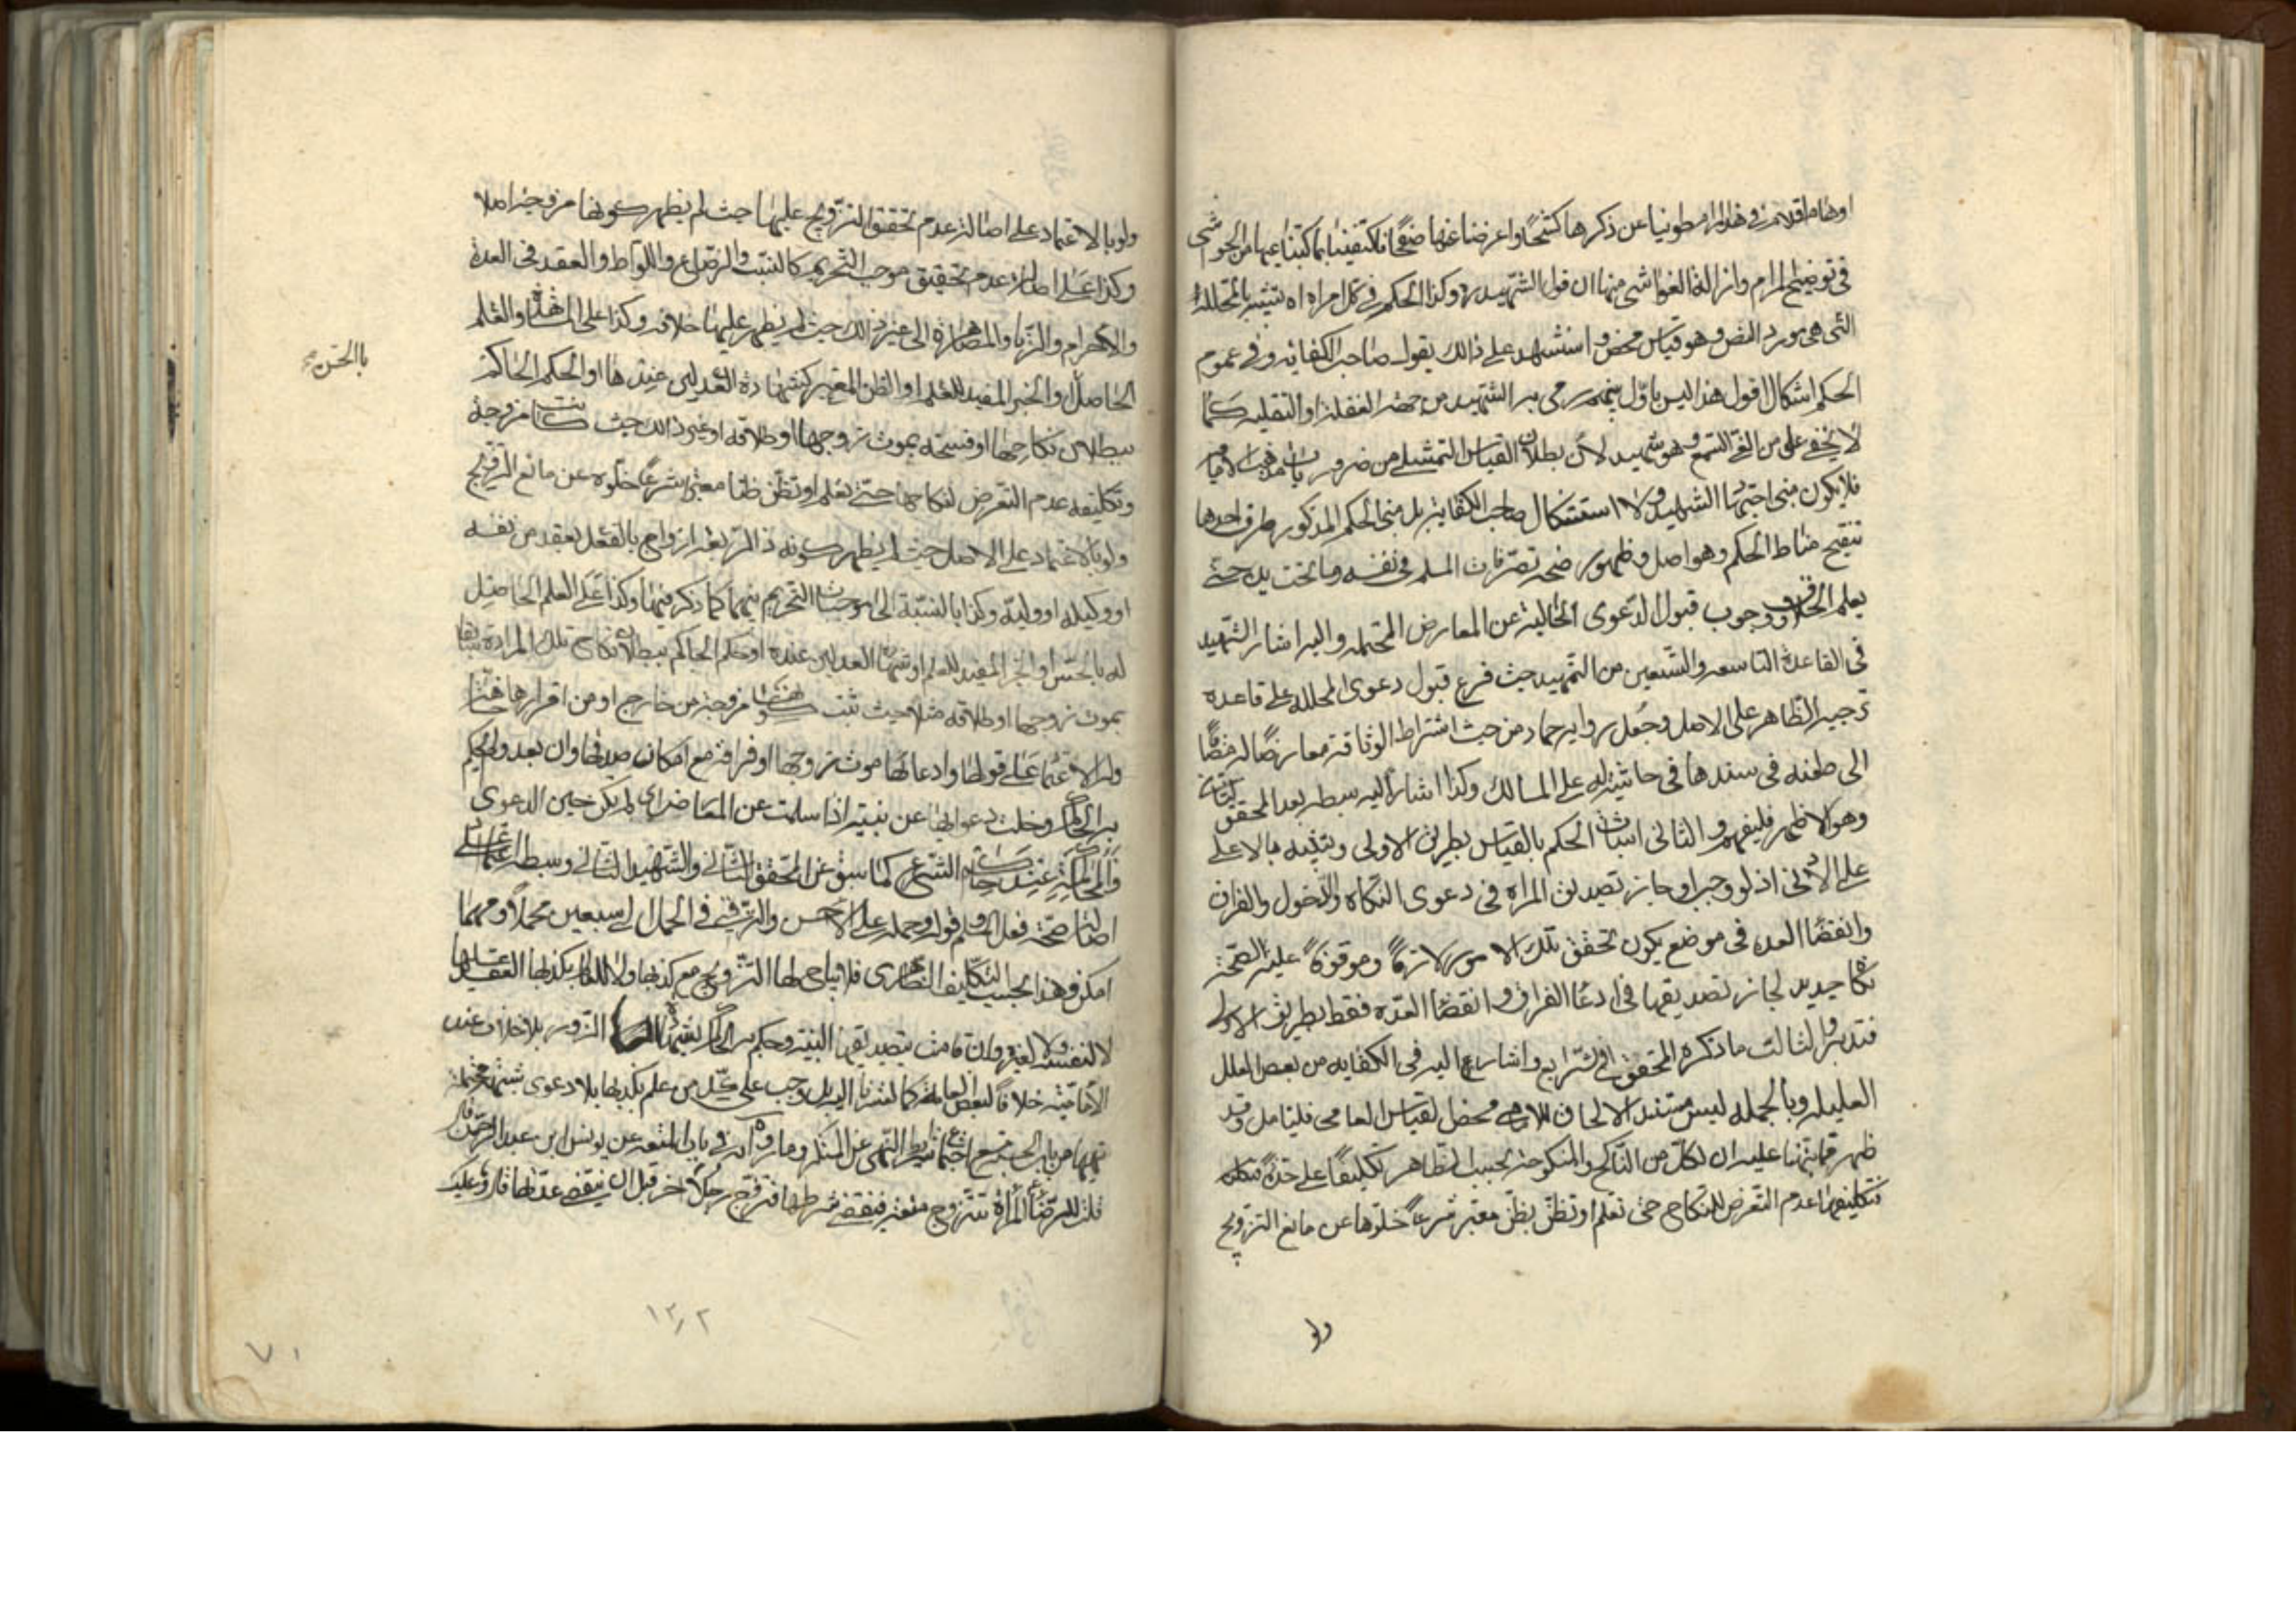 اوهاما قلام فی هذا المرام طوینا عن ذکرها کشحًا واعرضنا عنها صفحًا فاکتفینا بما کتبنا علیها من الحواشی
فی توضیح المرام وازالة الغواشی منها ان قول الشهید ره وکذا الحکم فی کل امراه اه تشبیه بالمحللة
التی هی مورد النص وهو قیاس محض واستشهد علی ذالک بقول صاحب الکفایه وفی عموم
الحکم اشکال اقول هذا لیس باول رمی به الشهید من جهة الغفلة او التقلیه کما
لا یخفی علی من القی السمع وهو شهید لان بطلان القیاس التمثیلی من ضروریات مذهب الامامیه
فلا یکون مبنی اجتهاد الشهید ولا استشکال صاحب الکفایة بل مبنی الحکم المذکور طرق احدها
تنقیح مناط الحکم وهو اصل وظهور صحة تصرفات المسلم فی نفسه وما تحت یده حتی
یعلم الخلاف ووجوب قبول الدعوی الخالیة عن المعارض المحتمله والیه اشار الشهید
فی القاعدة التاسعه والتسعین من التمهید حیث فرع قبول دعوی المحللة علی قاعده
ترجیح الظاهر علی الاصل وجعل روایه حماد من حیث اشتراط الوثاقة معارضًا له
الی طعنه فی سندها فی حاشیته علی المسالک وکذا اشار الیه سبطه بعد المحقق
وهو الاظهر فلیفهم والثانی اثبات الحکم بالقیاس بطریق الاولی وتنبیه بالاعلی
علی الادنی اذ لو وجب او جاز تصدیق المراه فی دعوی النکاه والدخول والفراق
وانقضا العده فی موضع یکون تحقق تلک الامور لازمًا وموقوفًا علیه لصحة
نکاح جدید لجاز تصدیقها فی ادعا الفراق وانقضا العدة فقط بطریق الاولی
فتدبر والثالث ما ذکره المحقق فی الشرایع واشار الیه فی الکفایه من بعض العلل
العلیله وبالجمله لیس مستند الالحاق محض القیاس العامی فلیتامل وقد
ظهر مما نبهنا علیه ان لکل من الناکح والمنکوحة بحسب الظاهر تکلیفًا علی حدة
فتکلیفها عدم التعرض للنکاح حتی تعلم او تظن بظن معتبر شرعًا خلوها عن مانع التزویج
ولو
ولو بالاعتماد علی اصالة عدم تحقق التزویج علیها حیث لم یظهر کونها مزوجة ام لا
وکذا علی اصالة عدم تحقیق موجب التحریم کالنسب والرضاع واللواط والعقد فی العدة
والاحرام والزنا والمصاهرة الی غیر ذالک حیث لم یظهر علیها خلافه وکذا علی المشاهدة والعلم
الحاصل او الخبر المفید للعلم او الظن المعتبر کشهادة العدلین عندها او الحکم الحاکم
ببطلان نکاحها او فسخه بموت زوجها او طلاقه او غیر ذالک حیث کانت مزوجة
وتکلیفه عدم التعرض لنکاحها حتی یعلم او یظن ظنًا معتبرًا شرعًا خلوه عن مانع التزویج
ولو بالاعتماد علی الاصل حیث لم یظهر کونه ذا اربعة ازواج بالفعل بعقد من نفسه
او وکیله او ولیه وکذا بالنسبة الی موجبات التحریم بینهما کما ذکر فیها وکذا علی العلم الحاصل
له بالحس او الخبر المفید للعلم او شهادة العدلین عنده او حکم الحاکم ببطلان نکاح تلک المراة
بموت زوجها او طلاقه مثلا حیث ثبت کونها مزوجة من خارج او من اقرارها
وله الاعتماد علی قولها وادعائها موت زوجها او فراقه مع امکان صدقها وان بعد ولم یحکم
به الحاکم وخلت دعوایها عن بینة اذا سلمت عن المعارض ای لم یکن حین الدعوی
والمحاکمة عند حاکم الشرع کما سبق عن المحقق الثانی والشهید الثانی وسبطه
اصالة صحة فعل المسلم وقوله وحمله علی الاحسن والترقی فی الحمل الی سبعین محملاً ومهما
امکن وهذا بحسب التکلیف الظاهری فلا یباح لها التزویج مع کذبها ولا للعالم بکذبها العقد علیها
لا لنفسه ولا لغیره وان قامت بتصدیقها البینه وحکم به الحاکم بشهادة الزور بلا خلاف عند
الامامیة خلافًا لبعض العامة کما اشرنا الیه بل وجب علی کل من علم بکذبها بلا دعوی شبهة محتملة
نهیها من باب الحسبة مع اجتماع شرایط النهی عن المنکر وما رواه فی باب المتعه عن یونس ابن عبد الرحمن قال
قلت للرضا ع المرأة تتزوج متعة فینقضی شرطها فتزوج رجلاً اخر قبل ان ینقضی عدتها قال وما علیک
باالحسن
۱۳۰۲
۷۱